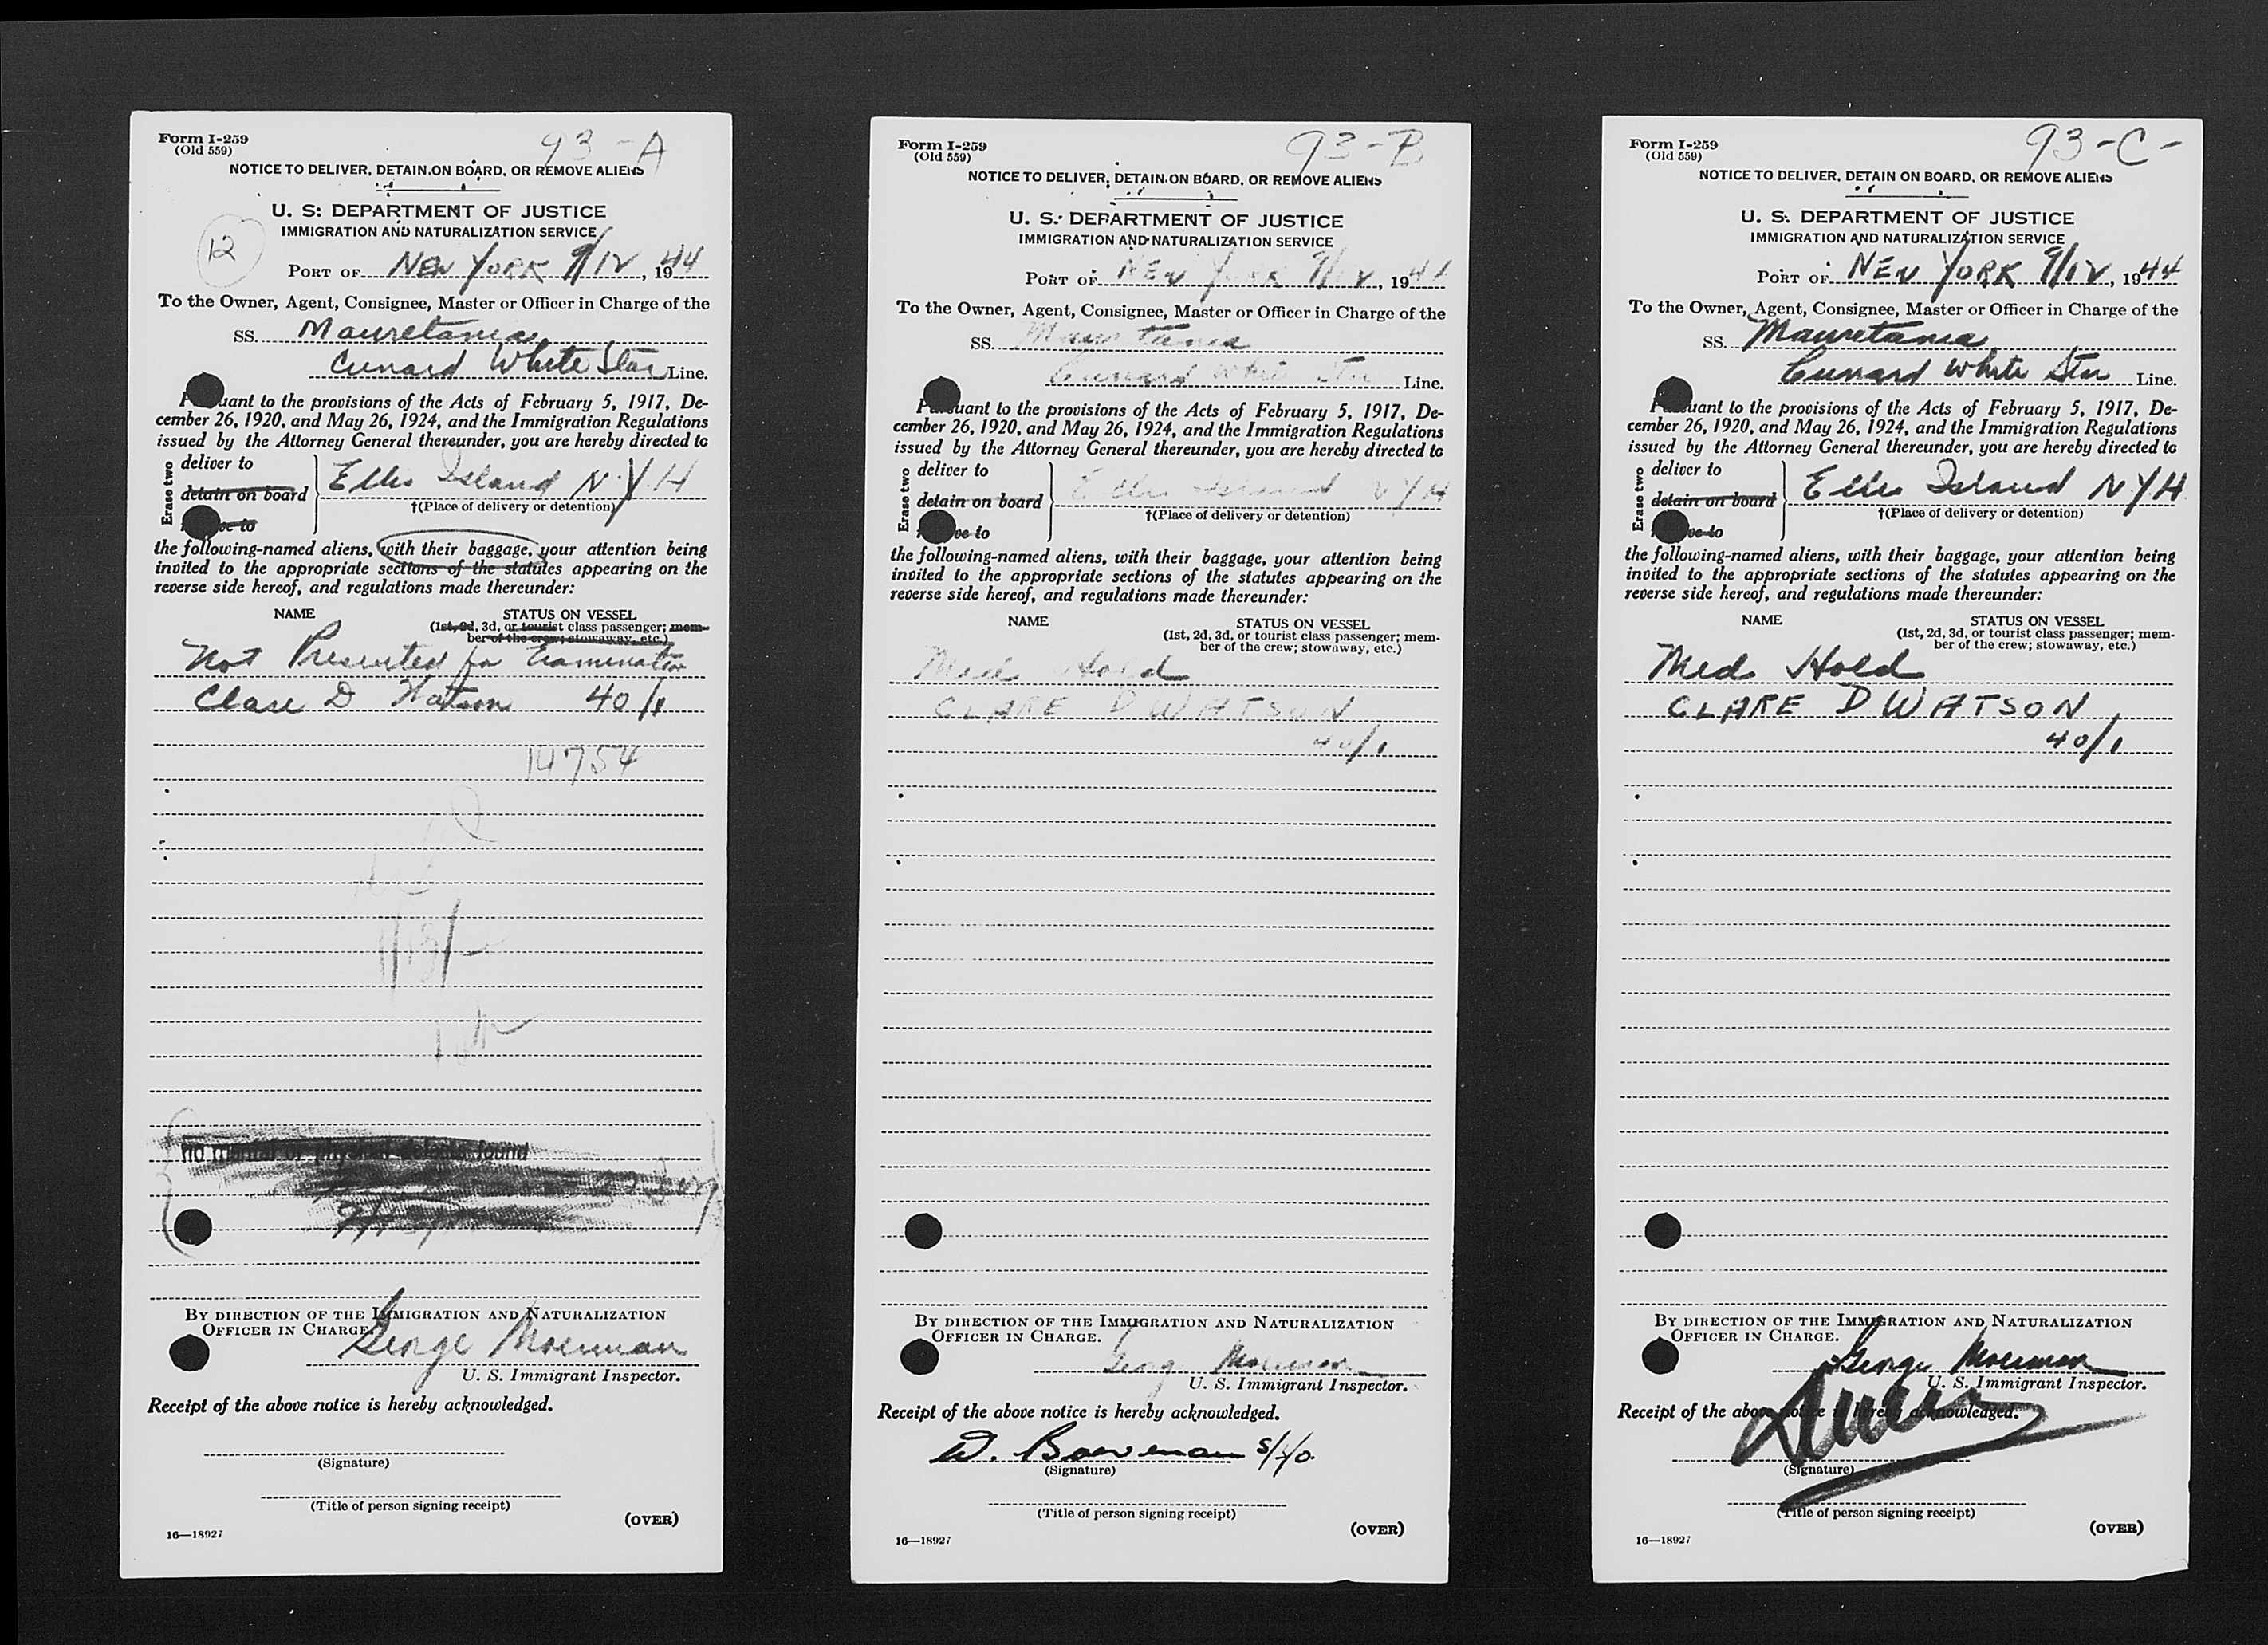 Form I-259
(Old 559)
93-A
NOTICE TO DELIVER, DETAIN ON BOARD, OR REMOVE ALIENS
U. S. DEPARTMENT OF JUSTICE
IMMIGRATION AND NATURALIZATION SERVICE
12
PORT OF NEW YORK 9/12, 1944
To the Owner, Agent, Consignee, Master or Officer in Charge of the
SS. Mauretania
Cunard White Star Line.
Pursuant to the provisions of the Acts of February 5, 1917, De-
cember 26, 1920, and May 26, 1924, and the Immigration Regulations
issued by the Attorney General thereunder, you are hereby directed to
Erase two
deliver to
detain on board
Ellis Island N.Y.H
†(Place of delivery or detention)
the following-named aliens, with their baggage, your attention being
invited to the appropriate sections of the statutes appearing on the
reverse side hereof, and regulations made thereunder:
NAME STATUS ON VESSEL
(1st, 2d, 3d, or tourist class passenger; mem-
ber of the crew; stowaway, etc.)
Not Presented for Examination
Clare D Watson 40/1
14754
no mental or physical defects found
BY DIRECTION OF THE IMMIGRATION AND NATURALIZATION
OFFICER IN CHARGE.
George Moerman
U. S. Immigrant Inspector.
Receipt of the above notice is hereby acknowledged.
(Signature)
(Title of person signing receipt)
(OVER)
16—18927
Form I-259
(Old 559)
93-B
NOTICE TO DELIVER, DETAIN ON BOARD, OR REMOVE ALIENS
U. S. DEPARTMENT OF JUSTICE
IMMIGRATION AND NATURALIZATION SERVICE
PORT OF NEW YORK 9/12, 1944
To the Owner, Agent, Consignee, Master or Officer in Charge of the
SS. Mauretania
Cunard White Star Line.
Pursuant to the provisions of the Acts of February 5, 1917, De-
cember 26, 1920, and May 26, 1924, and the Immigration Regulations
issued by the Attorney General thereunder, you are hereby directed to
Erase two
deliver to
detain on board
Ellis Island NYH
†(Place of delivery or detention)
the following-named aliens, with their baggage, your attention being
invited to the appropriate sections of the statutes appearing on the
reverse side hereof, and regulations made thereunder:
NAME STATUS ON VESSEL
(1st, 2d, 3d, or tourist class passenger; mem-
ber of the crew; stowaway, etc.)
Med Hold
CLARE D WATSON
40/1
BY DIRECTION OF THE IMMIGRATION AND NATURALIZATION
OFFICER IN CHARGE.
George Moerman
U. S. Immigrant Inspector.
Receipt of the above notice is hereby acknowledged.
W. Bowman
(Signature)
(Title of person signing receipt)
(OVER)
16—18927
Form I-259
(Old 559)
93-C-
NOTICE TO DELIVER, DETAIN ON BOARD, OR REMOVE ALIENS
U. S. DEPARTMENT OF JUSTICE
IMMIGRATION AND NATURALIZATION SERVICE
PORT OF NEW YORK 9/12, 1944
To the Owner, Agent, Consignee, Master or Officer in Charge of the
SS. Mauretania
Cunard White Star Line.
Pursuant to the provisions of the Acts of February 5, 1917, De-
cember 26, 1920, and May 26, 1924, and the Immigration Regulations
issued by the Attorney General thereunder, you are hereby directed to
Erase two
deliver to
detain on board
Ellis Island NYH
†(Place of delivery or detention)
the following-named aliens, with their baggage, your attention being
invited to the appropriate sections of the statutes appearing on the
reverse side hereof, and regulations made thereunder:
NAME STATUS ON VESSEL
(1st, 2d, 3d, or tourist class passenger; mem-
ber of the crew; stowaway, etc.)
Med Hold
CLARE D WATSON
40/1
BY DIRECTION OF THE IMMIGRATION AND NATURALIZATION
OFFICER IN CHARGE.
George Moerman
U. S. Immigrant Inspector.
Receipt of the above notice is hereby acknowledged.
(Signature)
(Title of person signing receipt)
(OVER)
16—18927